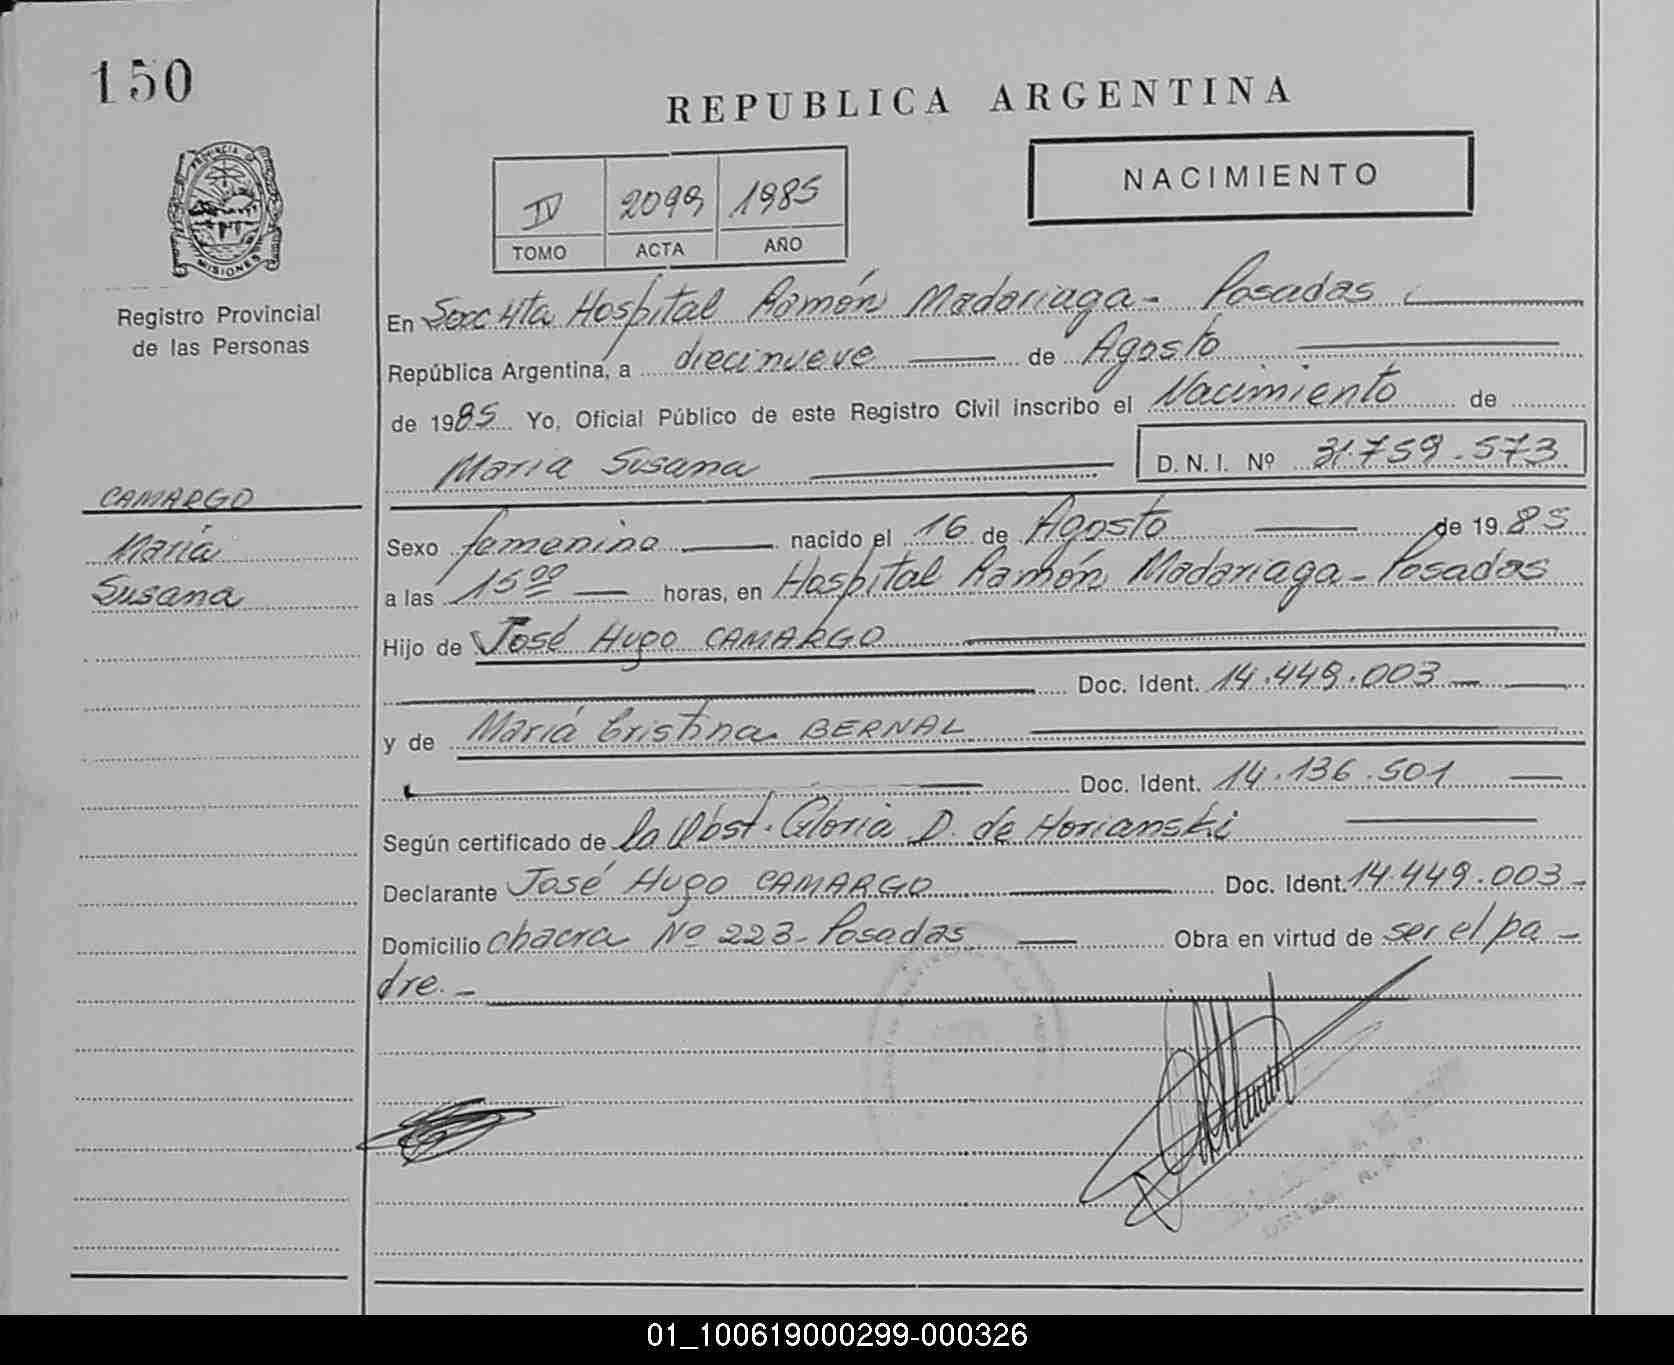 150
REPUBLICA ARGENTINA
NACIMIENTO
IV 2099 1985
TOMO ACTA AÑO
PROVINCIA DE MISIONES
Registro Provincial
de las Personas
En Secc 4ta Hospital Ramón Madariaga - Posadas
República Argentina, a diecinueve de Agosto
de 1985 Yo, Oficial Público de este Registro Civil inscribo el Nacimiento de
Maria Susana D. N. I. Nº 31.759.573
CAMARGO
María
Susana
Sexo femenino nacido el 16 de Agosto de 1985
a las 15 00 horas, en Hospital Ramón Madariaga - Posadas
Hijo de José Hugo CAMARGO
Doc. Ident. 14.449.003
y de María Cristina BERNAL
Doc. Ident. 14.136.501
Según certificado de la Obst. Gloria D. de Horianski
Declarante José Hugo CAMARGO Doc. Ident. 14.449.003 -
Domicilio chacra Nº 223 - Posadas Obra en virtud de ser el pa -
dre. -
01_100619000299-000326